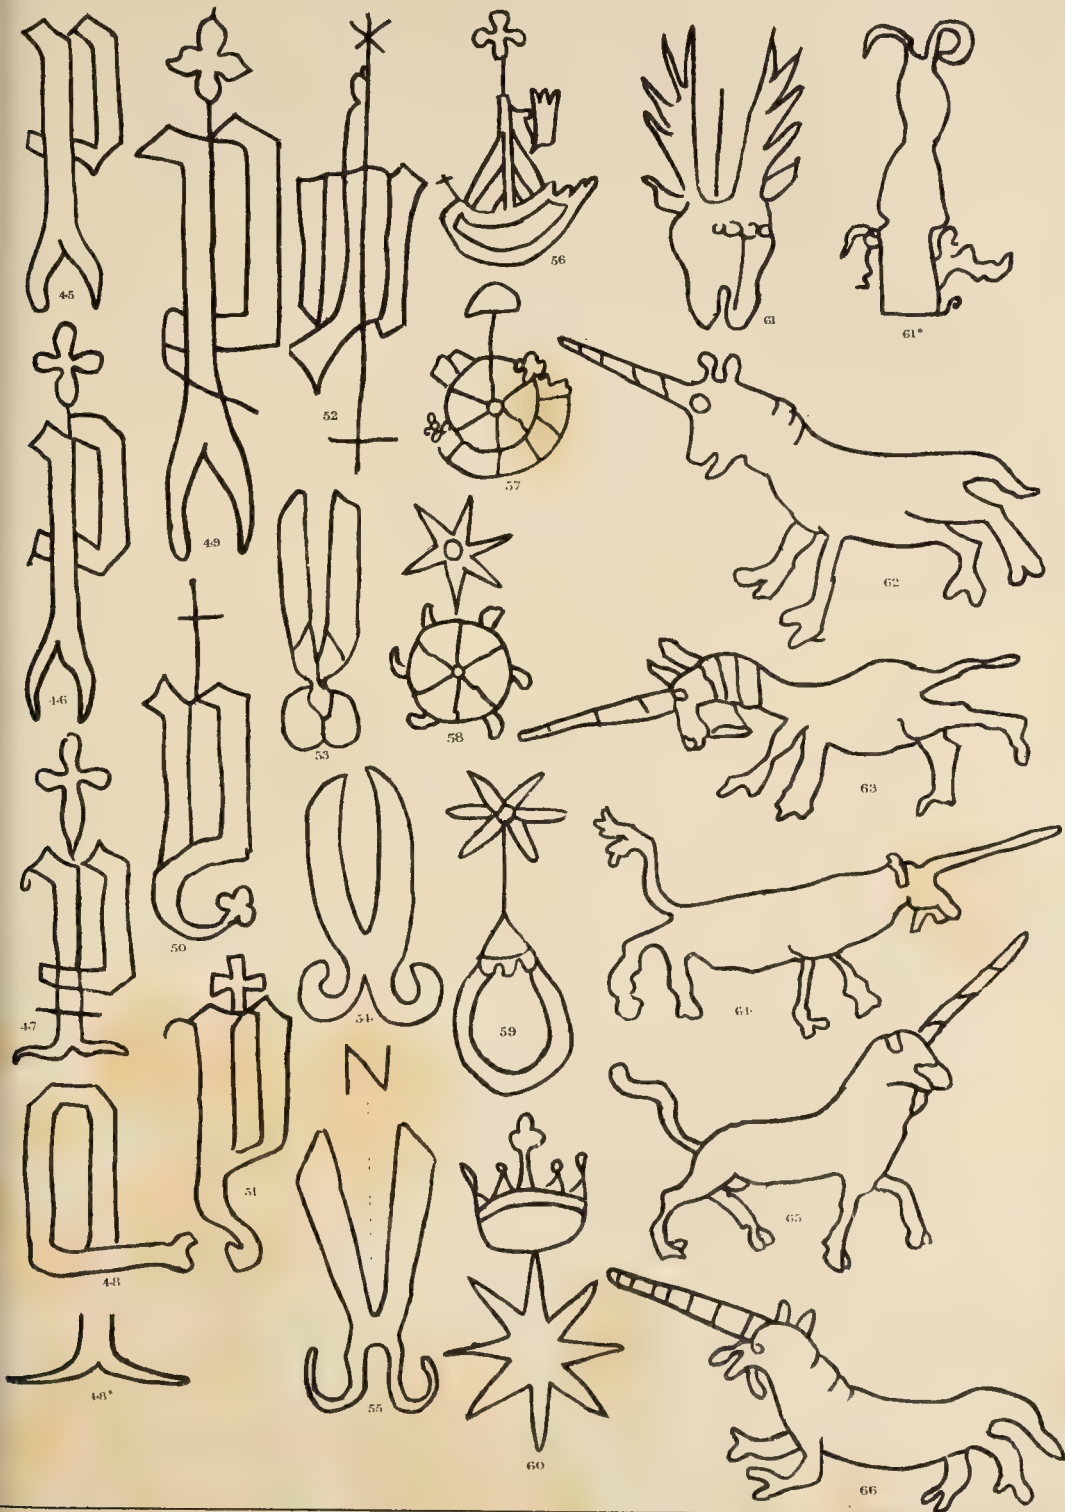 45
46
47
48
48*
49
50
51
52
53
54
N
55
56
57
58
59
60
61
61*
62
63
64
65
66